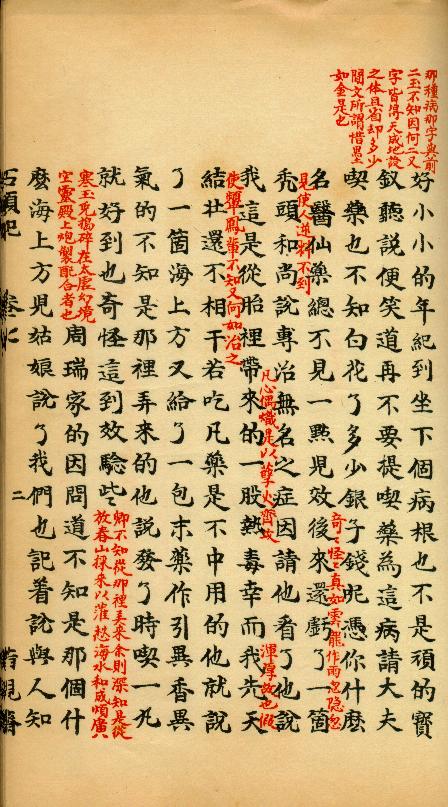 那種病那字與前
二玉不知因何二又
字皆得天成地設
之体且省却多少
閒文所謂惜墨
如金是也
好小小的年紀到坐下個病根也不是頑的寳
釵聽說便笑道再不要提喫藥為這病請大夫
喫藥也不知白花了多少銀子錢呢憑你什庅
竒〻怪〻真如雲龍作雨忽隐忽
見使人逆料不到
名醫仙藥總不見一㸃児效後來還虧了一箇
禿頭和尚說專治無名之症因請他看了他說
凡心偶熾是以孽火齊攻
渾厚故也假
使顰鳳輩不知又何如治之
我這是從胎裡帶來的一股熱毒幸而我先天
結壮還不相干若吃凡藥是不中用的他就說
了一箇海上方又給了一包末藥作引異香異
氣的不知是那裡弄来的他說發了時喫一丸
就好到也奇怪這到效驗些
卿不知從那裡弄来余則深知是從
放春山採来以灌愁海水和成煩廣
寒玉兎搗碎在太虚幻境
空靈殿上炮製配合者也
周瑞家的因問道不知是那個什
庅海上方児姑娘說了我們也記着說與人知
石頭記
卷七
二